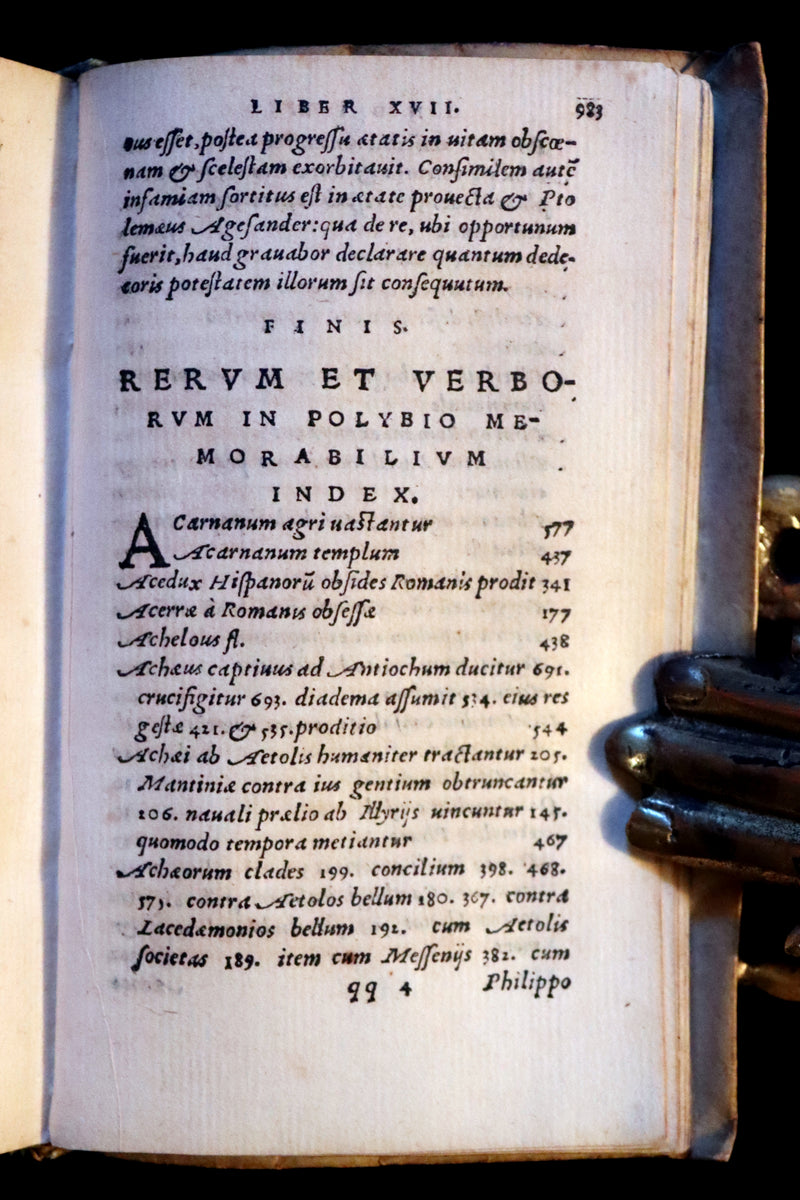 LIBER XVII. 983
ous esset, postea progressu ætatis in uitam obscœ-
nam & scelestam exorbitauit. Consimilem autẽ
infamiam sortitus est in ætate prouecta & Pto
lemæus Agesander: qua de re, ubi opportunum
fuerit, haud grauabor declarare quantum dede-
coris potestatem illorum sit consequutum.
FINIS.
RERVM ET VERBO-
RVM IN POLYBIO ME-
MORABILIVM
INDEX.
ACarnanum agri uastantur 577
Acarnanum templum 437
Acedux Hispanorũ obsides Romanis prodit 341
Acerræ à Romanis obsessæ 177
Achelous fl. 438
Achæus captiuus ad Antiochum ducitur 691.
crucifigitur 693. diadema assumit 534. eius res
gestæ 421. & 535. proditio 544
Achæi ab Aetolis humaniter tractantur 205.
Mantiniæ contra ius gentium obtruncantur
206. nauali prælio ab Illyrijs uincuntur 145.
quomodo tempora metiantur 467
Achæorum clades 199. concilium 398. 468.
575. contra Aetolos bellum 180. 367. contra
Lacedæmonios bellum 192. cum Aetolis
societas 189. item cum Messenijs 382. cum
qq 4 Philippo